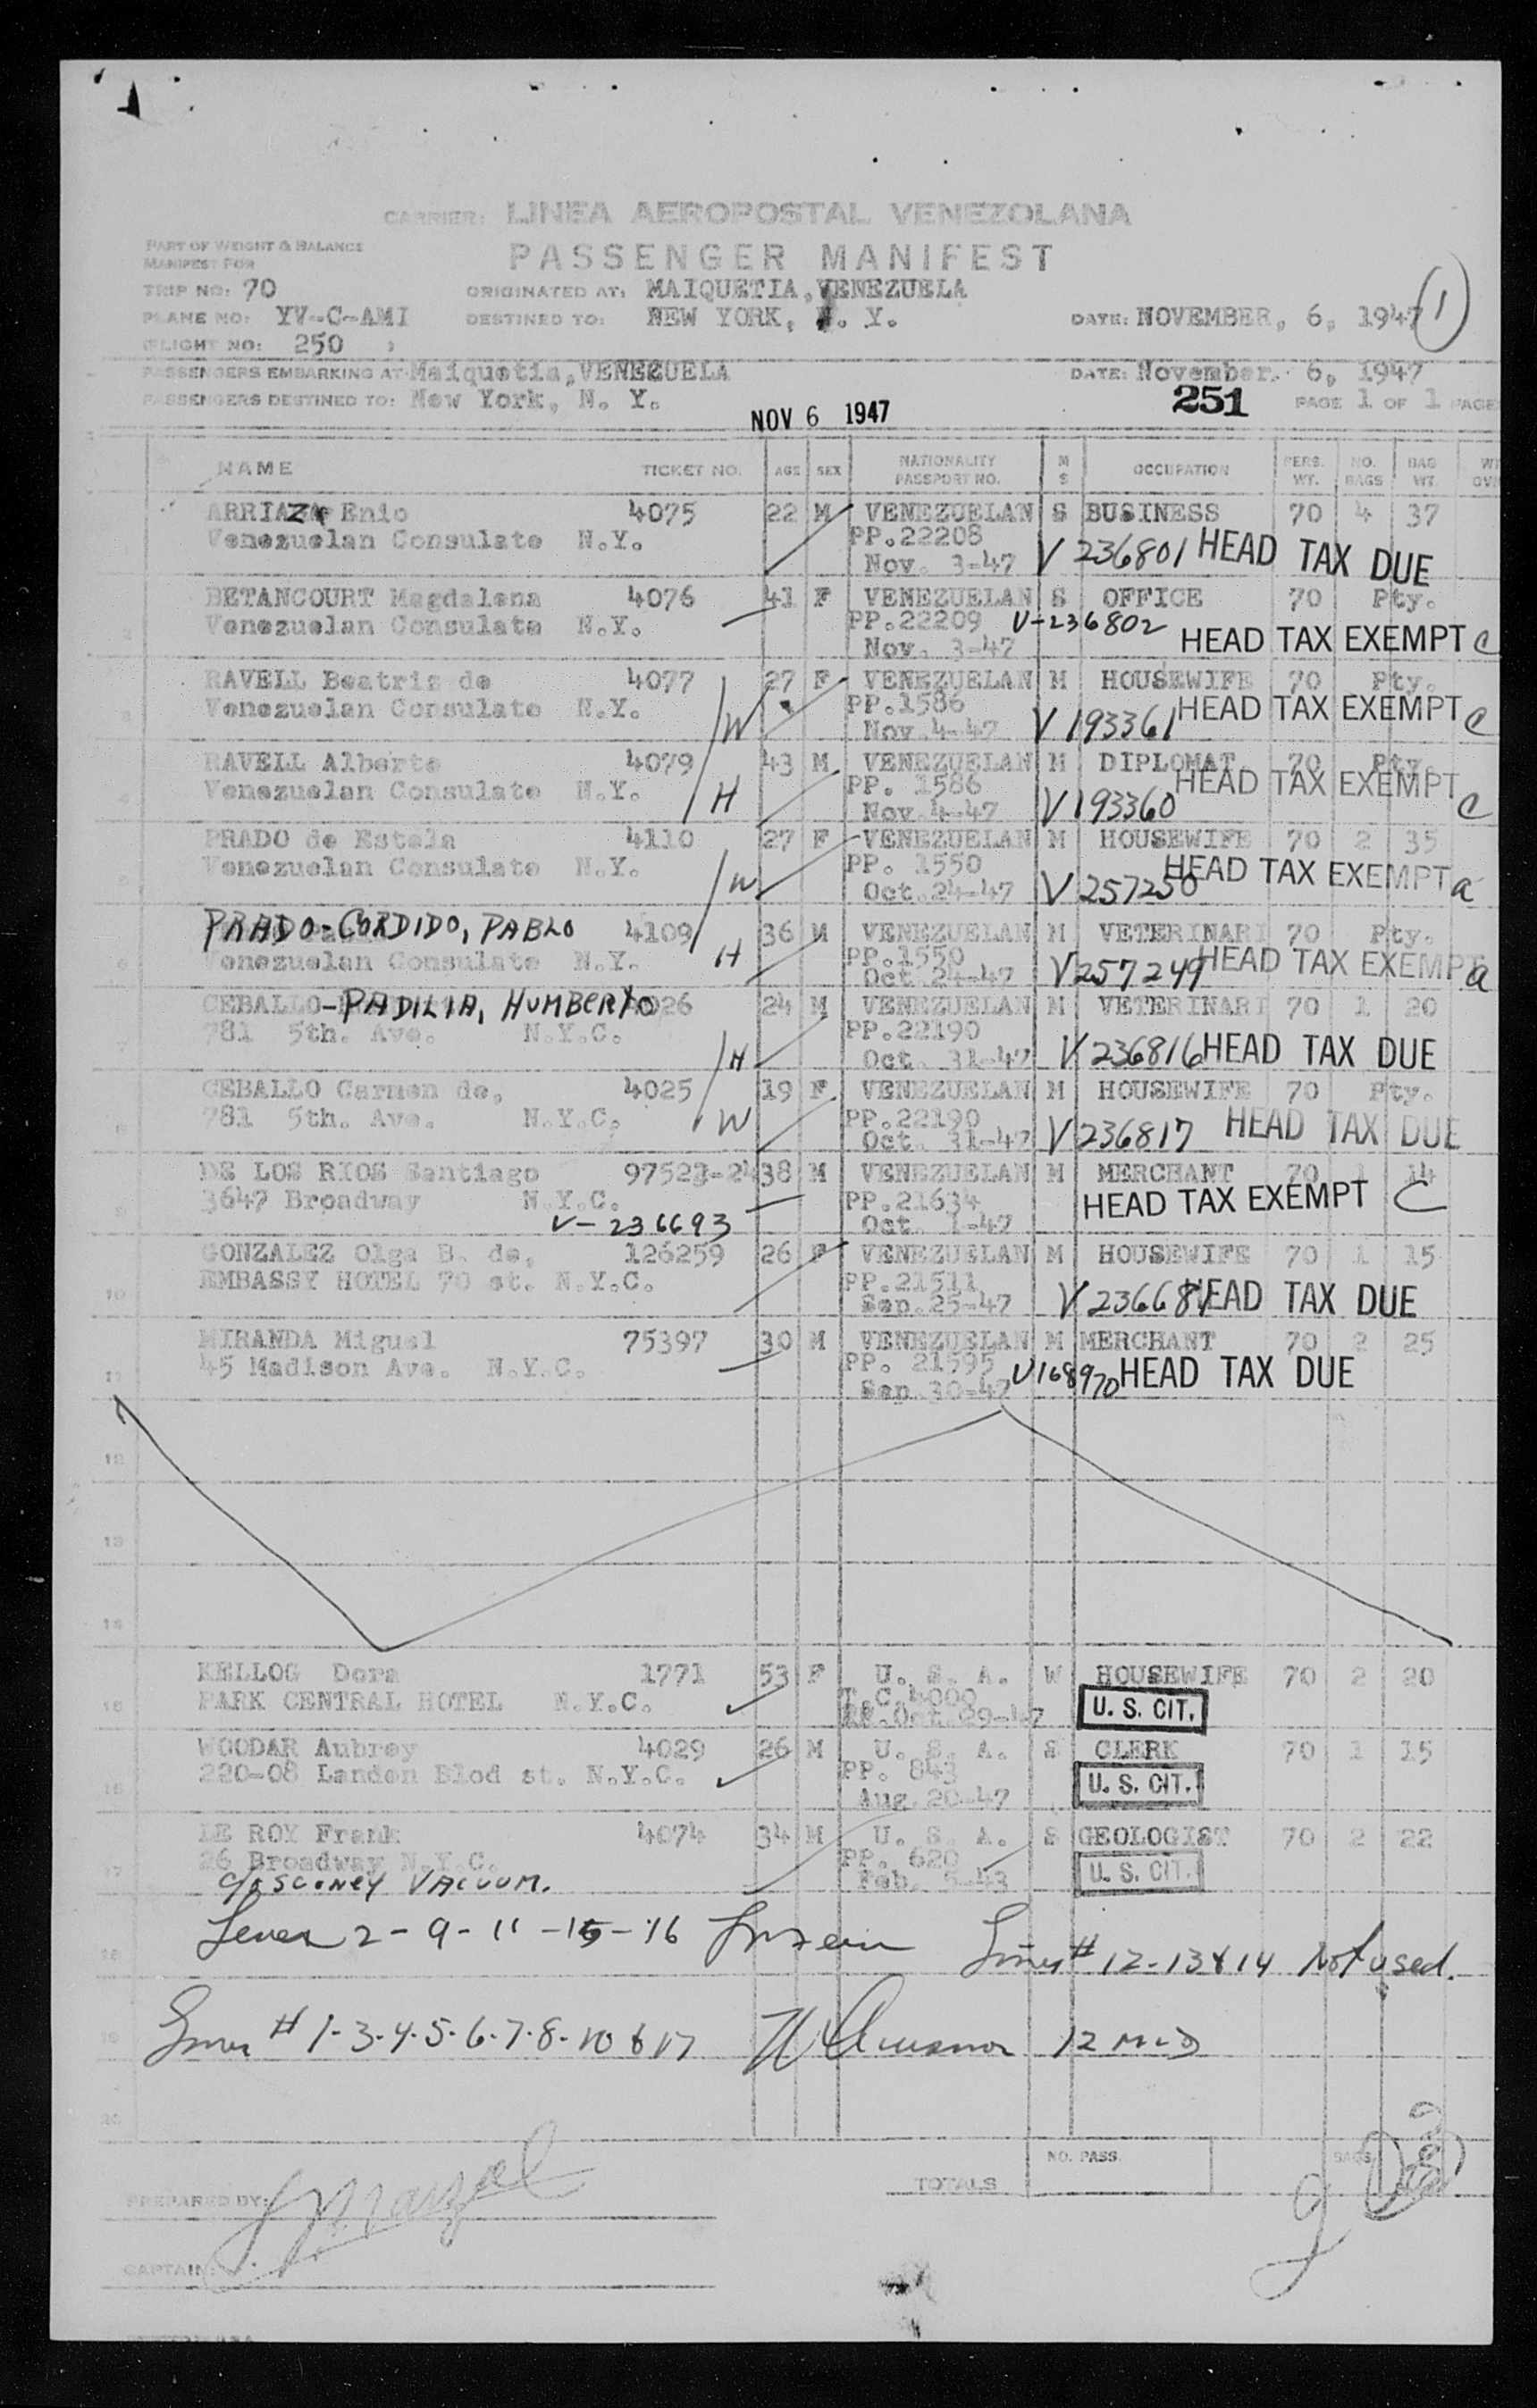 CARRIER: LINEA AEROPOSTAL VENEZOLANA
PART OF WEIGHT & BALANCE
MANIFEST FOR
PASSENGER MANIFEST
TRIP NO: 70 ORIGINATED AT: MAIQUETIA, VENEZUELA
PLANE NO: YV-C-AMI DESTINED TO: NEW YORK, N. Y. DATE: NOVEMBER, 6, 1947 (1)
FLIGHT NO: 250
PASSENGERS EMBARKING AT Maiquetia, VENEZUELA DATE: November. 6, 1947
PASSENGERS DESTINED TO: New York, N. Y. 251 PAGE 1 OF 1 PAGE
NOV 6 1947
NAME TICKET NO. AGE SEX NATIONALITY PASSPORT NO. M S OCCUPATION PERS. WT. NO. BAGS BAG WT.
ARRIAZA Enio 4075 22 M VENEZUELAN S BUSINESS 70 4 37
Venezuelan Consulate N.Y. PP.22208
Nov. 3-47 V 236801 HEAD TAX DUE
BETANCOURT Magdalena 4076 41 F VENEZUELAN S OFFICE 70 Pty.
Venezuelan Consulate N.Y. PP.22209 V-236802
Nov. 3-47 HEAD TAX EXEMPT C
RAVELL Beatriz de 4077 27 F VENEZUELAN M HOUSEWIFE 70 Pty.
Venezuelan Consulate N.Y. W PP.1586
Nov.4-47 V 193361 HEAD TAX EXEMPT C
RAVELL Alberto 4079 43 M VENEZUELAN M DIPLOMAT 70 Pty.
Venezuelan Consulate N.Y. H PP. 1586
Nov.4-47 V 193360 HEAD TAX EXEMPT C
PRADO de Estela 4110 27 F VENEZUELAN M HOUSEWIFE 70 2 35
Venezuelan Consulate N.Y. W PP. 1550
Oct.24-47 V 257250 HEAD TAX EXEMPT a
PRADO-CORDIDO, PABLO 4109 36 M VENEZUELAN M VETERINARI 70 Pty.
Venezuelan Consulate N.Y. H PP.1550
Oct.24-47 V257249 HEAD TAX EXEMPT a
CEBALLO-PADILIA, HUMBERTO 4026 24 M VENEZUELAN M VETERINARI 70 1 20
781 5th. Ave. N.Y.C. PP.22190
H Oct. 31-47 V 236816 HEAD TAX DUE
CEBALLO Carmen de, 4025 19 F VENEZUELAN M HOUSEWIFE 70 Pty.
781 5th. Ave. N.Y.C. W PP.22190
Oct. 31-47 V 236817 HEAD TAX DUE
DE LOS RIOS Santiago 97523-24 38 M VENEZUELAN M MERCHANT 70 1 14
3647 Broadway N.Y.C. PP.21634 HEAD TAX EXEMPT C
V-236693 Oct. 1-47
GONZALEZ Olga B. de, 126259 26 F VENEZUELAN M HOUSEWIFE 70 1 15
EMBASSY HOTEL 70 st. N.Y.C. PP.21511
Sep.25-47 V 236681 HEAD TAX DUE
MIRANDA Miguel 75397 30 M VENEZUELAN M MERCHANT 70 2 25
45 Madison Ave. N.Y.C. PP. 21595
Sep.30-47 V168970 HEAD TAX DUE
12
13
14
KELLOG Dora 1771 53 F U. S. A. W HOUSEWIFE 70 2 20
PARK CENTRAL HOTEL N.Y.C. T.C.4000
Oct. 29-47 U. S. CIT.
WOODAR Aubrey 4029 26 M U. S. A. S CLERK 70 1 15
220-08 Landen Blod st. N.Y.C. PP. 843
Aug.20-47 U. S. CIT.
LE ROY Frank 4074 34 M U. S. A. S GEOLOGIST 70 2 22
26 Broadway N.Y.C. PP. 620
Feb. 5-43 U. S. CIT.
c/o SCONEY VACUUM.
2-9-11-15-16 Lines # 12-13 & 14 Not used.
Lines # 1-3-4-5-6-7-8-10 & 17
TOTALS NO. PASS. BAGS
PREPARED BY:
CAPTAIN: